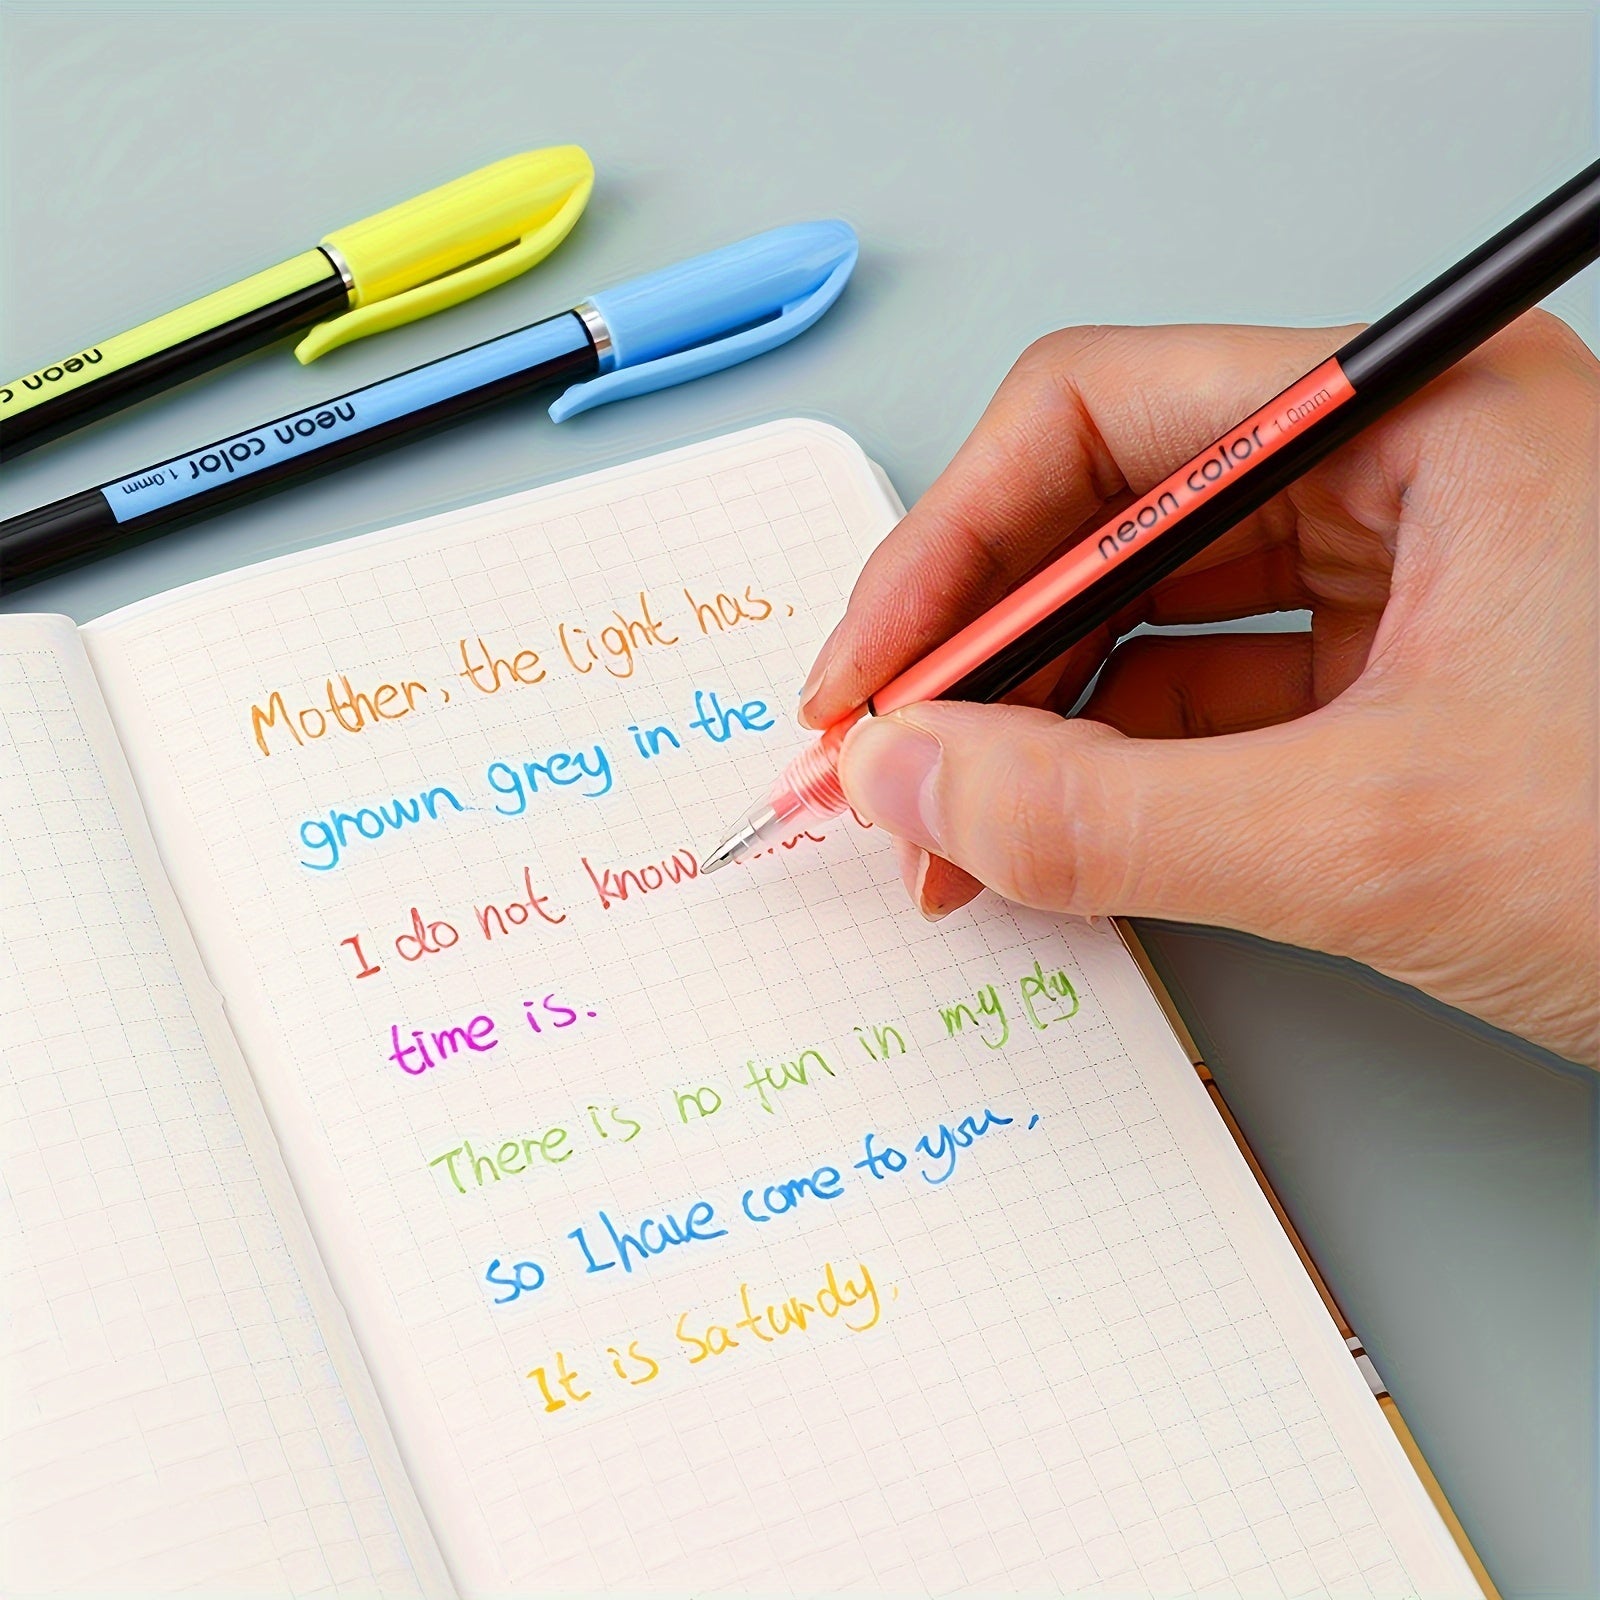 neon c
neon color 1.0mm
neon color 1.0mm
Mother, the light has,
grown grey in the
I do not know.
time is.
There is no fun in my ply
so I have come to you,
It is Saturdy,